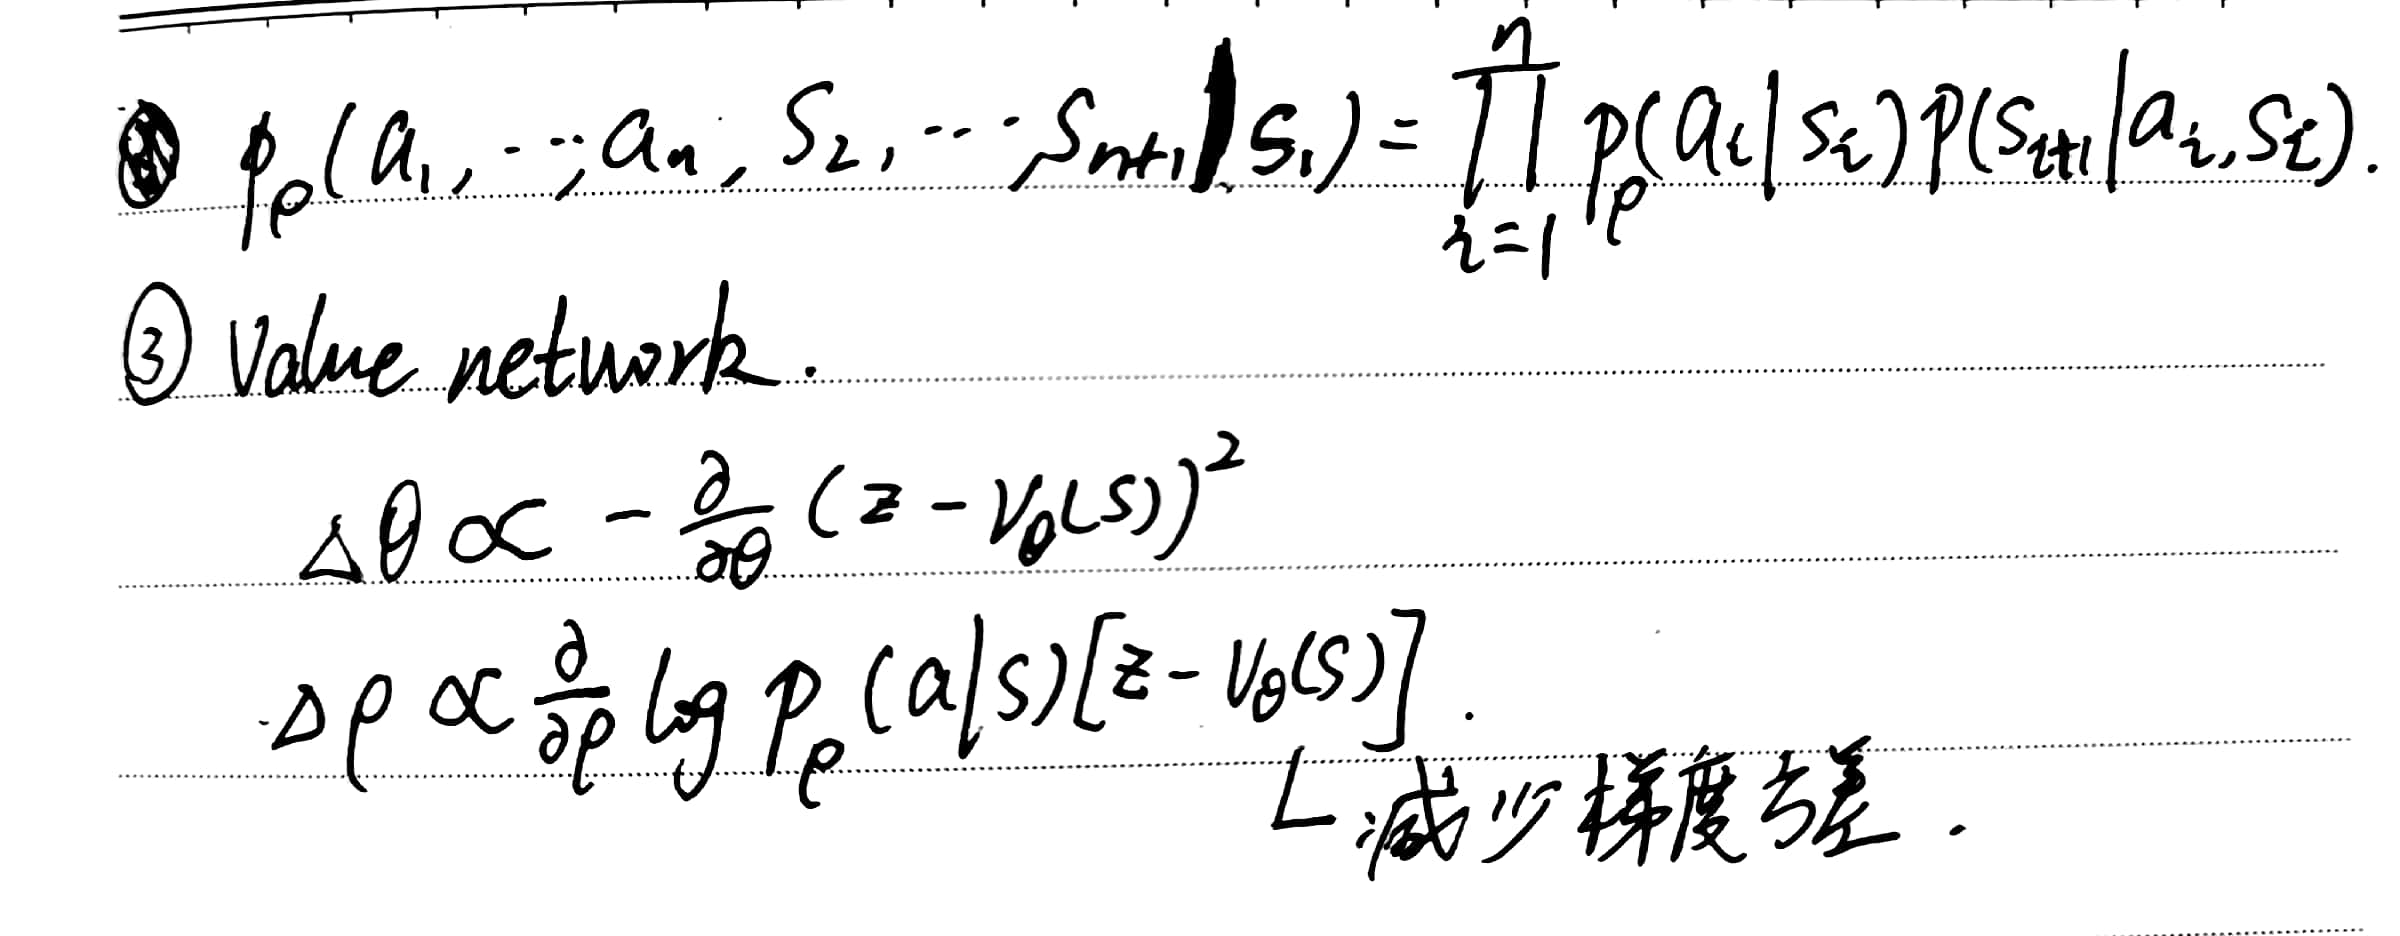 p_ρ(a₁, ..., aₙ, S₂, ..., Sₙ₊₁|S₁) = ∏ⁿᵢ₌₁ p_ρ(aᵢ|Sᵢ)P(Sᵢ₊₁|aᵢ, Sᵢ).
③ Value network.
Δθ ∝ - ∂/∂θ (z - V_θ(S))²
Δρ ∝ ∂/∂ρ log p_ρ(a|S)[z - V_θ(S)].
减少梯度方差.